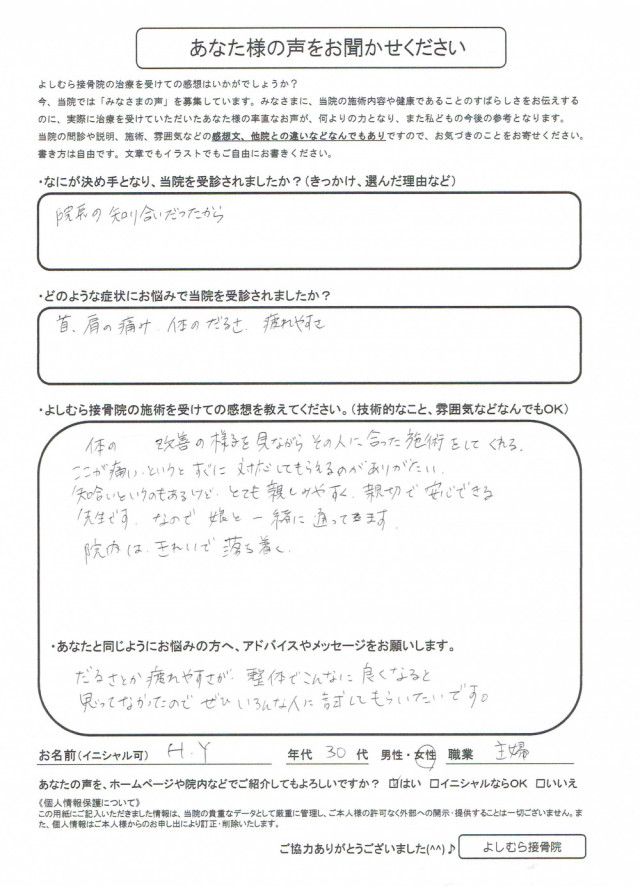 あなた様の声をお聞かせください
よしむら接骨院の治療を受けての感想はいかがでしょうか？
今、当院では「みなさまの声」を募集しています。みなさまに、当院の施術内容や健康であることのすばらしさをお伝えする
のに、実際に治療を受けていただいたあなた様の率直なお声が、何よりの力となり、また私どもの今後の参考となります。
当院の問診や説明、施術、雰囲気などの感想文、他院との違いなどなんでもありですので、お気づきのことをお寄せください。
書き方は自由です。文章でもイラストでもご自由にお書きください。
・なにが決め手となり、当院を受診されましたか？（きっかけ、選んだ理由など）
院長の知り合いだったから
・どのような症状にお悩みで当院を受診されましたか？
首、肩の痛み、体のだるさ、疲れやすさ
・よしむら接骨院の施術を受けての感想を教えてください。（技術的なこと、雰囲気などなんでもOK）
体の 改善の様子を見ながらその人に合った施術をしてくれる。
ここが痛いというとすぐに対応してもらえるのがありがたい。
知合いというのもあるけど、とても親しみやすく、親切で安心できる
先生です。なので娘と一緒に通ってます。
院内は、きれいで落ち着く。
・あなたと同じようにお悩みの方へ、アドバイスやメッセージをお願いします。
だるさとか疲れやすさが、整体でこんなに良くなると
思ってなかったのでぜひいろんな人に試してもらいたいです。
お名前（イニシャル可） H.Y 年代 30 代 男性・女性 職業 主婦
あなたの声を、ホームページや院内などでご紹介してもよろしいですか？ ☑はい □イニシャルならOK □いいえ
《個人情報保護について》
この用紙にご記入いただきました情報は、当院の貴重なデータとして厳重に管理し、ご本人様の許可なく外部への開示・提供することは一切ございません。ま
た、個人情報はご本人様からのお申し出により訂正・削除いたします。
ご協力ありがとうございました(^^)♪ よしむら接骨院